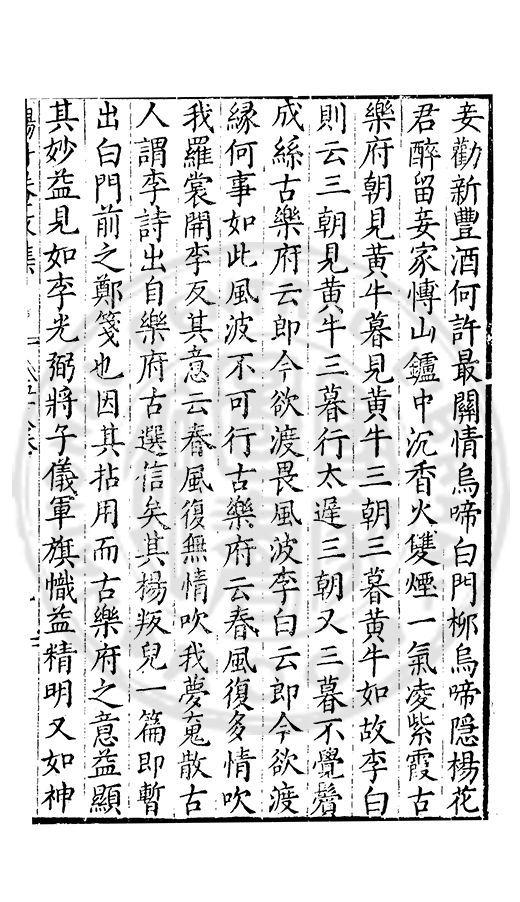 妾勸新豐酒何許最關情烏啼白門柳烏啼隱楊花
君醉留妾家愽山鑪中沉香火雙煙一氣凌紫霞古
樂府朝見黃牛暮見黃牛三朝三暮黃牛如故李白
則云三朝見黃牛三暮行太遲三朝又三暮不覺鬢
成絲古樂府云郎今欲渡畏風波李白云郎今欲渡
縁何事如此風波不可行古樂府云春風復多情吹
我羅裳開李反其意云春風復無情吹我夢䰟散古
人謂李詩出自樂府古選信矣其楊叛兒一篇即暫
出白門前之鄭箋也因其拈用而古樂府之意益顯
其妙益見如李光弼將子儀軍旗幟益精明又如神